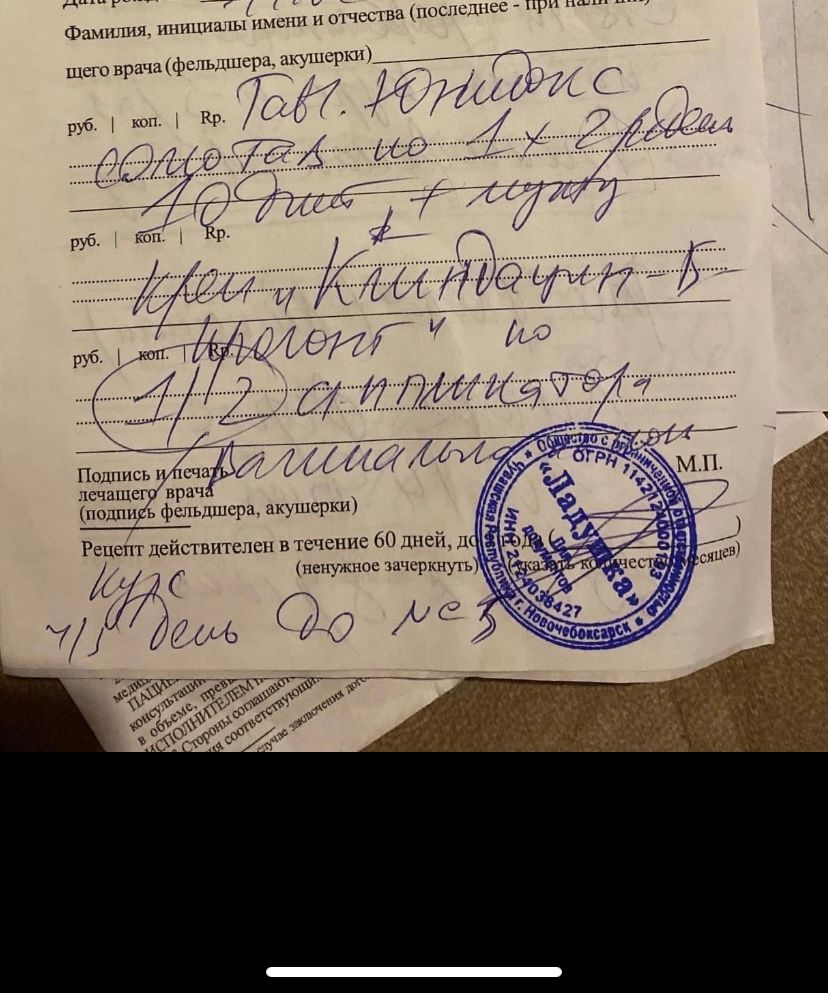 Фамилия, инициалы имени и отчества (последнее - при наличии)
щего врача (фельдшера, акушерки)
руб. | коп. | Rp. Табл. Юнидокс
солютаб по 1 х 2 р/день
10 дней + мужу
руб. | коп. | Rp.
крем "Клиндацин-Б
пролонг" по
руб. | коп. | Rp.
1/2 аппликатора
вагинально
Подпись и печать
лечащего врача
М.П.
(подпись фельдшера, акушерки)
Рецепт действителен в течение 60 дней, до года (
)
(ненужное зачеркнуть) (указать количество месяцев)
Курс
ч/з день до № 5
Общество с ограниченной ответственностью
Чувашская Республика г. Новочебоксарск
ИНН 2124038427
«Ладушка»
Для документов
медиц
ПАЦИЕ
консультаци
в объеме, пре
ИСПОЛНИТЕЛЕМ
Стороны соглашаются
соответствующи
случае заключения дого